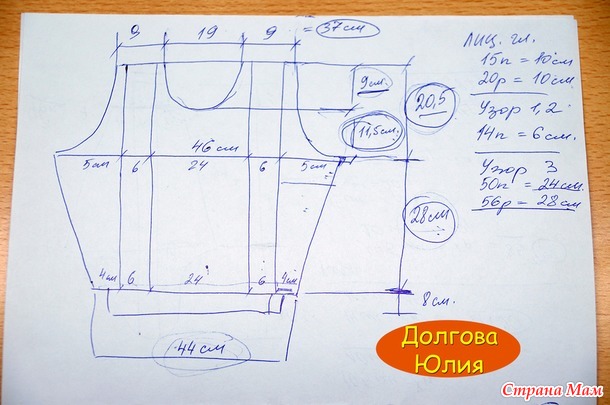 9 19 9 = 37см
9см.
20,5
11,5см.
46см
5см 6 24 6 5см
28см
4см 6 24 6 4см
8см.
44см
Лиц. гл.
15п = 10см
20р = 10см
Узор 1,2
14п = 6см.
Узор 3
50п = 24см.
56р = 28см
Долгова
Юлия
Страна Мам